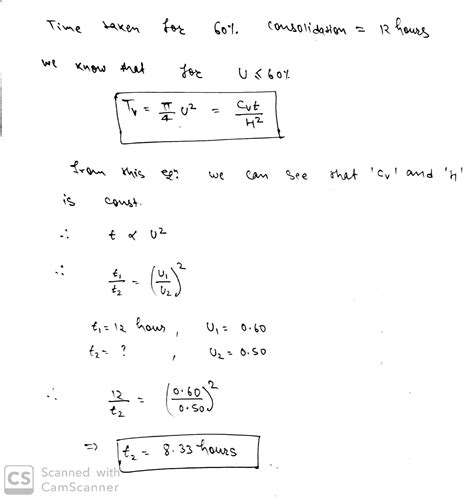 Time taken for 60% consolidation = 12 hours
we know that for U ≤ 60%
Tv = π/4 U² = Cvt/H²
from this eqn we can see that 'Cv' and 'H'
is const.
∴ t ∝ U²
∴ t₁/t₂ = (U₁/U₂)²
t₁ = 12 hour , U₁ = 0.60
t₂ = ? , U₂ = 0.50
∴ 12/t₂ = (0.60/0.50)²
⇒ t₂ = 8.33 hours
CS Scanned with
CamScanner